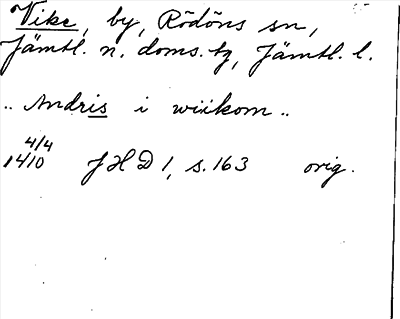 Vike, by, Rödöns sn,
Jämtl. n. doms.-hg, Jämtl. l.
.. Andris i wiikom ..
4/4
1410 JHD 1, s. 163 orig.